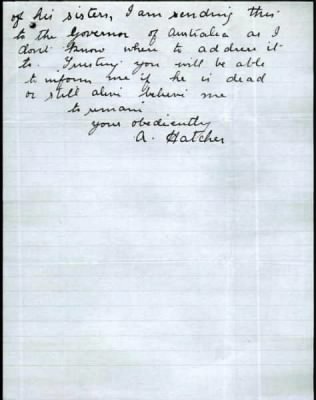 of his sisters, I am sending this
to the Governor of Australia as I
dont know where to address it
to. Trusting you will be able
to inform me if he is dead
or still alive believe me
to remain
your obediently
A. Hatcher